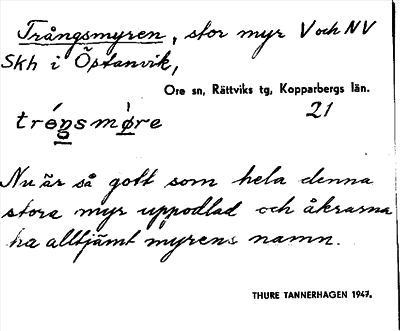 Trångsmyren, stor myr V och NV
Skh i Östanvik,
Ore sn, Rättviks tg, Kopparbergs län.
21
Nu är så gott som hela denna
stora myr uppodlad och åkrarna
ha alltjämt myrens namn.
THURE TANNERHAGEN 1947.